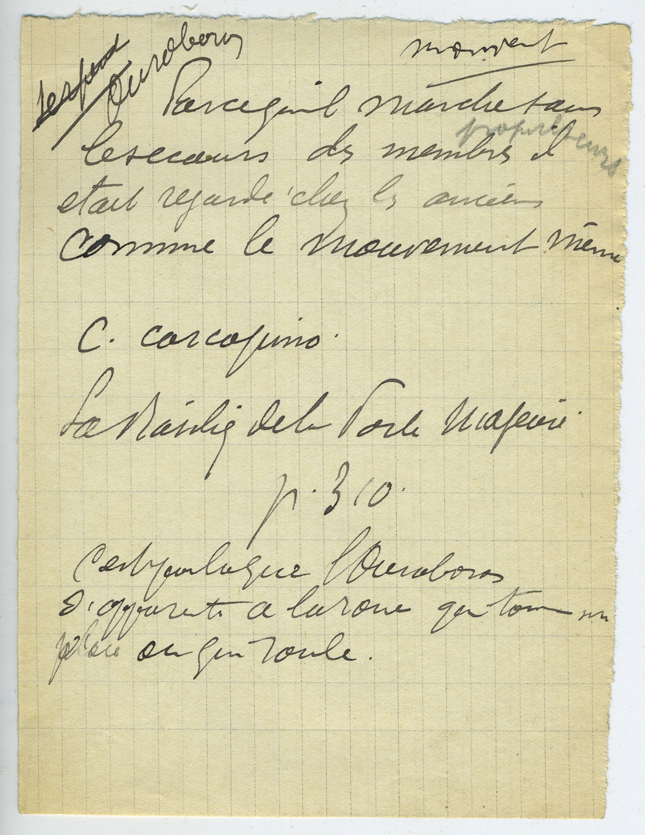 serpent
Ouroboros
mouvent
Parcequil marche sans
propulseurs
le secours des membres il
etait regardé chez les anciens
comme le mouvement même
C. carcopino.
La Basiliq de la Porte Majeure
p. 310.
C'est par la que l'Ouroboros
s'apparente a la roue qui tourne sur
place ou qui roule.